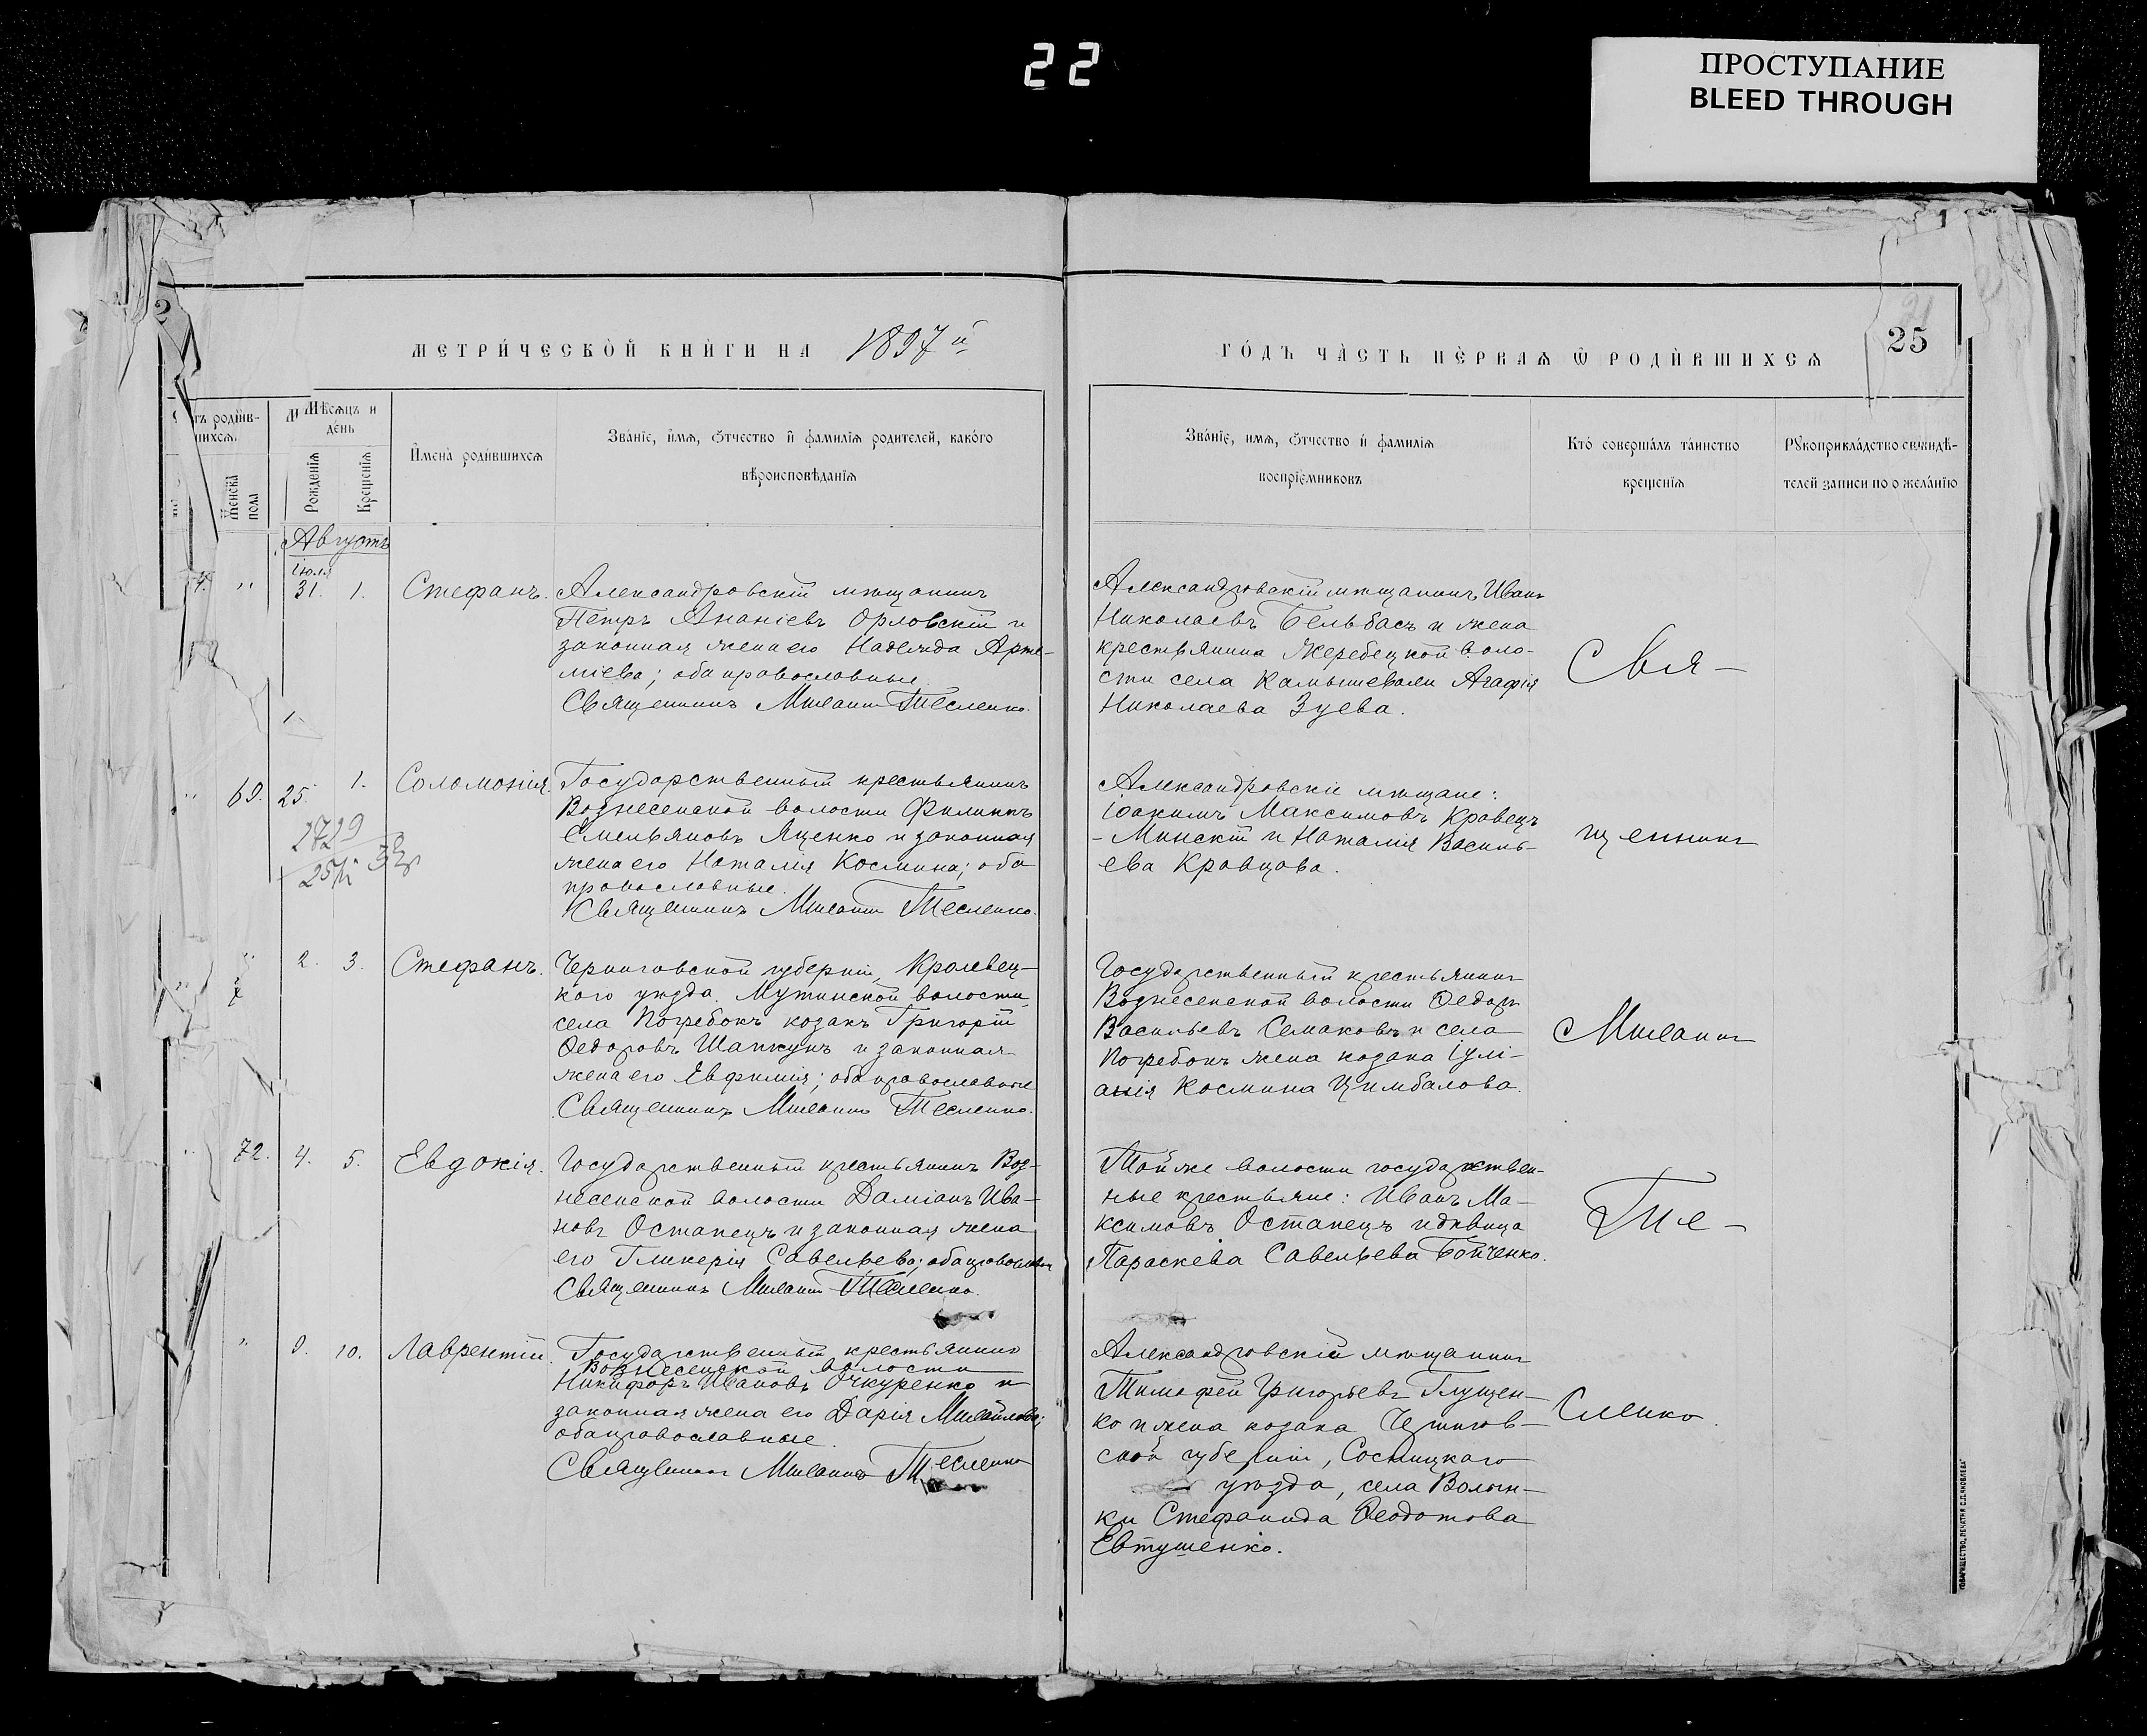 22
ПРОСТУПАНИЕ
BLEED THROUGH
25
МЕТРИ́ЧЕСКОЙ КНИ́ГИ НА 1897 й
ГО́ДЪ ЧА́СТЬ ПЕ́РВАѦ Ѿ РОДИ́ВШИХСѦ
Мѣ́сѧцъ и
де́нь
Рожденїѧ
Крещенїѧ
Же́нска
пола
Имена̀ роди́вшихсѧ
Зва́нїе, и́мѧ, ѻ҆тчество и҆ фамилїѧ родителей, како́го
вѣроисповѣданїѧ
Зва́нїе, имѧ, ѻ҆тчество и҆ фамилїѧ
воспрїемниковъ
Кто́ совершалъ та́инство
крещенїѧ
Рꙋкоприкла́дство свидѣ-
телей записи по о жела́нїю
Августъ
іюля
31. 1. Стефанъ.
Александровскій мѣщанинъ
Петръ Ананіевъ Орловскій и
законная жена его Надежда Арте-
міева; оба православные.
Священникъ Милантій Тесленко.
Александровскій мѣщанинъ Иванъ
Николаевъ Бельбасъ и жена
крестьянина Жеребецкой воло-
сти села Камышевахи Агафія
Николаева Зуева.
Свя-
69. 25. 1. Соломонія.
Государственный крестьянинъ
Вознесенской волости Филиппъ
Емельяновъ Яценко и законная
жена его Наталія Космина; оба
православные.
Священникъ Милантій Тесленко.
Александровскіе мѣщане:
Іоакимъ Максимовъ Кравецъ
-Минскій и Наталія Василь-
ева Кравцова.
щенникъ
2. 3. Стефанъ.
Черниговской губерніи, Кролевец-
кого уѣзда. Мутинской волости,
села Погребокъ козакъ Григорій
Ѳедоровъ Шапкунъ и законная
жена его Евфимія; оба православные
Священникъ Милантій Тесленко.
Государственный крестьянинъ
Вознесенской волости Ѳедоръ
Васильевъ Семаковъ и села
Погребокъ жена козака Іулі-
анія Космина Цимбалова.
Милантій
72. 4. 5. Евдокія.
Государственный крестьянинъ Воз-
несенской волости Даміанъ Ива-
новъ Остапецъ и законная жена
его Гликерія Савельева; оба православные
Священникъ Милантій Тесленко.
Той же волости государствен-
ные крестьяне: Иванъ Ма-
ксимовъ Остапецъ и дѣвица
Параскева Савельева Бойченко.
Те-
9. 10. Лаврентій.
Государственный крестьянинъ
Вознесенской волости
Никифоръ Ивановъ Очкуренко и
законная жена его Дарія Михайлова;
оба православные.
Священникъ Милантій Тесленко
Александровскій мѣщанинъ
Тимофей Григорьевъ Глущен-
ко и жена козака Чернигов-
ской губерніи, Сосницкаго
уѣзда, села Волын-
ки Стефанида Ѳеодотова
Евтушенко.
сленко.